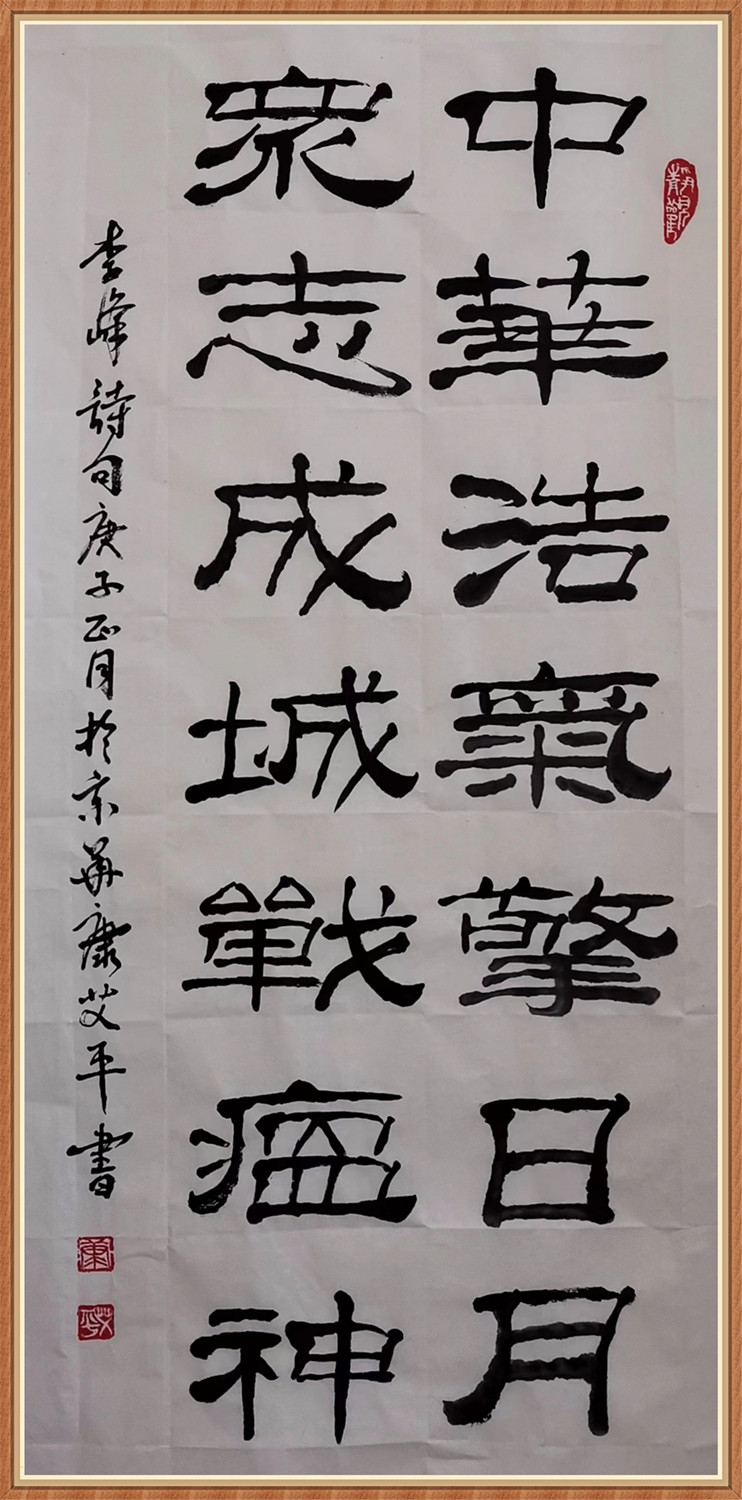 中華浩氣擎日月
衆志成城戰瘟神
李峰詩句庚子正月於京華康艾平書
靜觀